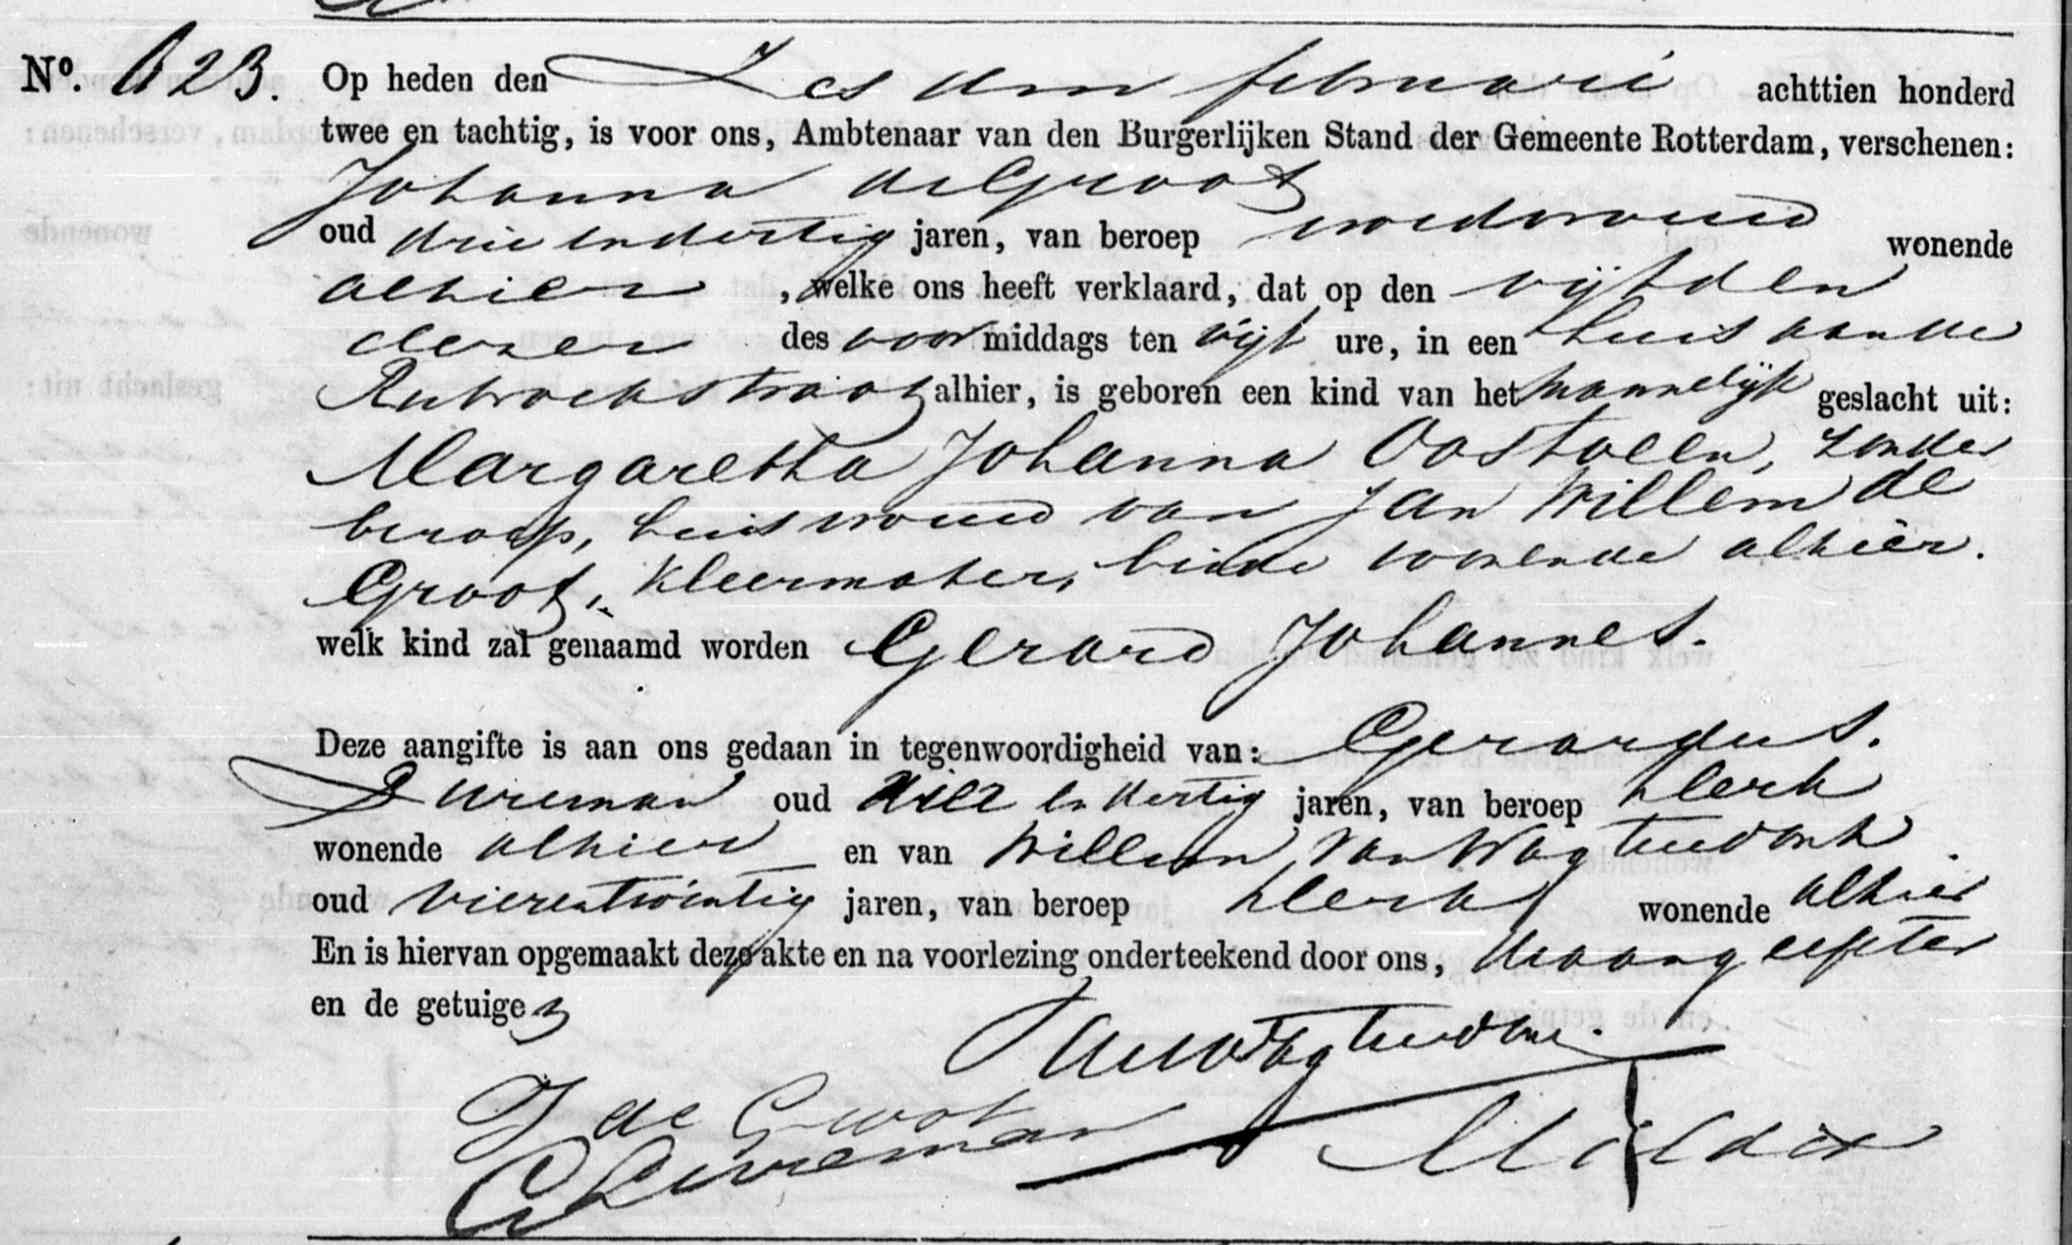 No. 623. Op heden den Zesden februarij achttien honderd
twee en tachtig, is voor ons, Ambtenaar van den Burgerlijken Stand der Gemeente Rotterdam, verschenen:
Johanna de Groot
oud drie endertig jaren, van beroep vroedvrouw wonende
alhier , welke ons heeft verklaard, dat op den vijfden
dezer des voor middags ten vijf ure, in een huis aan de
Rubroekstraat alhier, is geboren een kind van het mannelijk geslacht uit:
Margaretha Johanna Oostveen, zonder
beroep, huisvrouw van Jan Willem de
Groot, Kleermaker, beide wonende alhier.
welk kind zal genaamd worden Gerard Johannes.
Deze aangifte is aan ons gedaan in tegenwoordigheid van: Gerardus.
Bureman oud vier en dertig jaren, van beroep klerk
wonende alhier en van Willem van Wagtendonk
oud vierentwintig jaren, van beroep klerk wonende alhier
En is hiervan opgemaakt deze akte en na voorlezing onderteekend door ons, de aangeefster
en de getuigen
van Wagtendonk.
J de Groot
G Bureman
Mulder